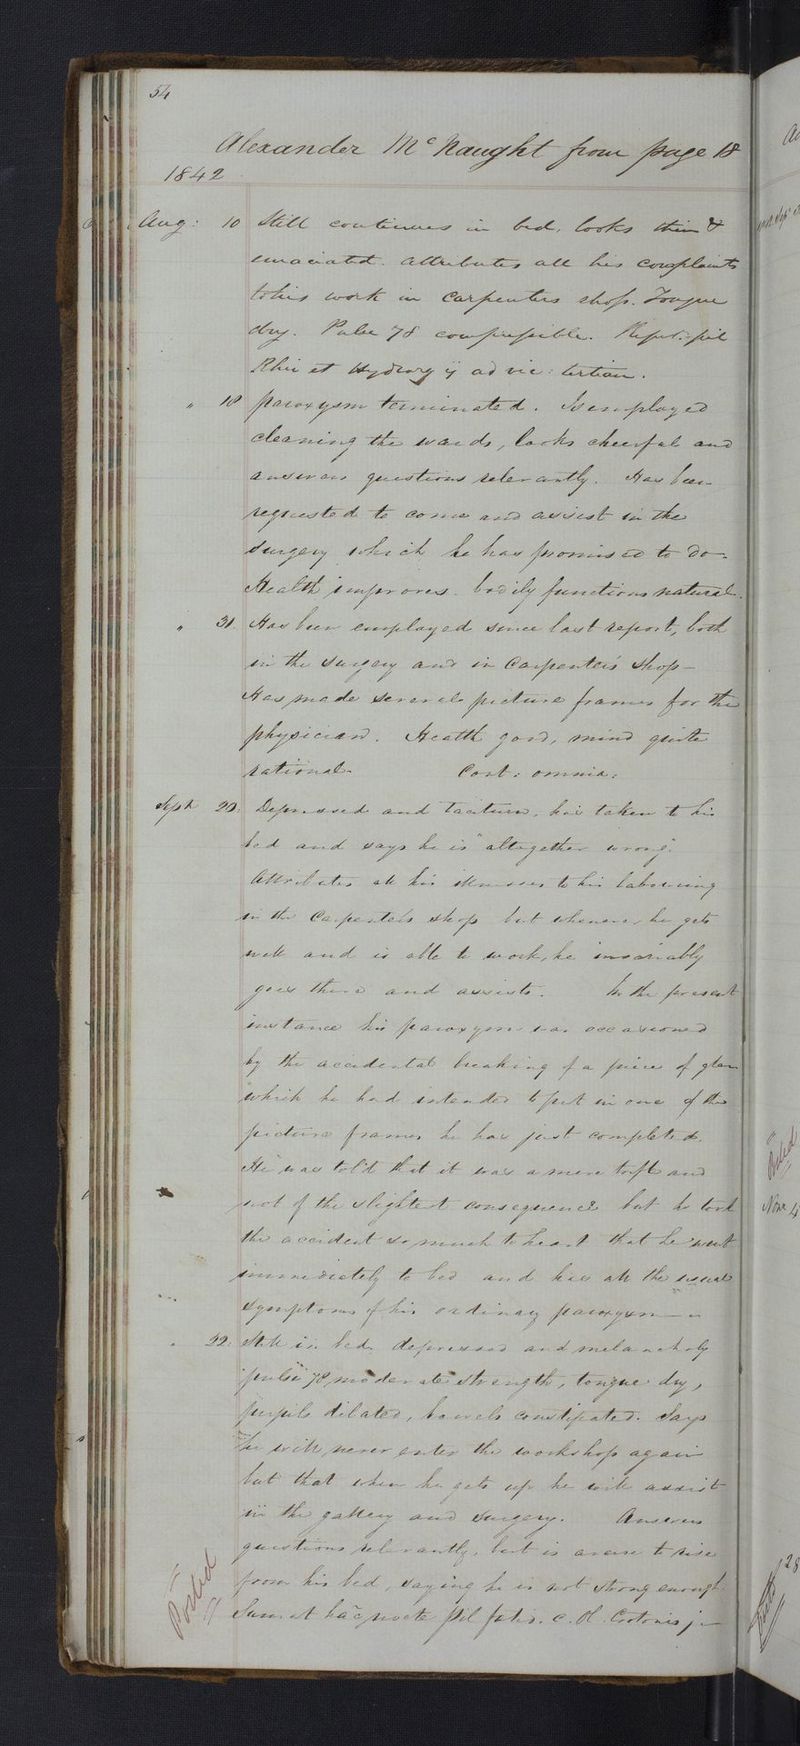 54
Alexander McNaught from page 18
1842
Aug: 10 Still continues in bed, looks thin &
emaciated. Attributes all his complaints
to his work in Carpenters shop. Tongue
dry. Pulse 78 compressible. Repet. pil
Rhei et Hydrarg ij ad vic: tertiam.
" 18 paroxysm terminated. Is employed
cleaning the wards, looks cheerful and
answers questions relevantly. Has been
requested to come and assist in the
surgery which he has promised to do.
Health improves. bodily functions natural.
" 31. Has been employed since last report, both
in the surgery and in Carpenter's shop -
Has made several picture frames for the
physician. Health good, mind quite
rational. Cont: omnia.
Sept 20. Depressed and taciturn, has taken to his
bed and says he is "altogether wrong"
Attributes all his illnesses to his labouring
in the Carpenters shop but whenever he gets
well and is able to work, he invariably
goes there and assists. In the present
instance his paroxysm was occasioned
by the accidental breaking of a piece of glass
which he had intended to put in one of the
picture frames he has just completed.
He was told that it was a mere trifle and
not of the slightest consequence but he took
the accident so much to heart that he went
immediately to bed and has all the usual
symptoms of his ordinary paroxysm -
" 22. Still in bed, depressed and melancholy
pulse 78 moderate strength, tongue dry,
pupils dilated, bowels constipated. Says
he will never enter the workshop again
but that when he gets up he will assist
in the gallery and surgery. Answers
questions relevantly, but is averse to rise
from his bed, saying he is not strong enough.
Sumat hac nocte pil c. Ol. Crotonis j. -
Posted
Posted
Nov 4
28